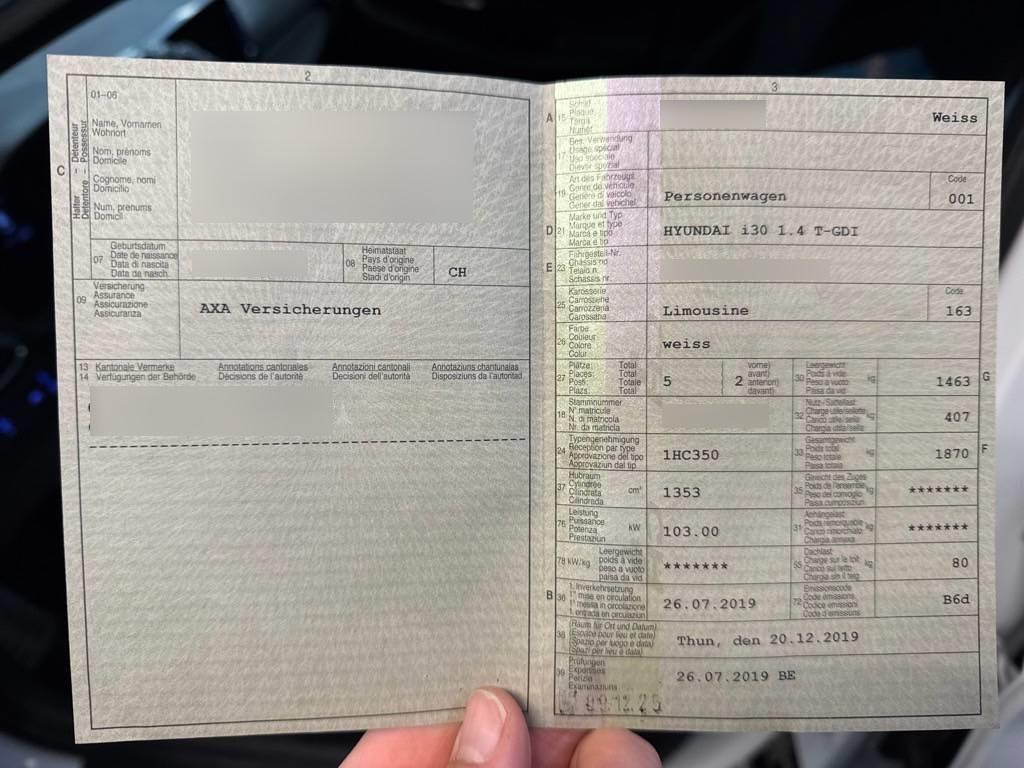 2
01–06
C
Halter – Détenteur
Detentore – Possessur
Name, Vornamen
Wohnort
Nom, prénoms
Domicile
Cognome, nomi
Domicilio
Num, prenums
Domicil
07
Geburtsdatum
Date de naissance
Data di nascita
Data da nasch.
08
Heimatstaat
Pays d'origine
Paese d'origine
Stadi d'origin
CH
09
Versicherung
Assurance
Assicurazione
Assicuranza
AXA Versicherungen
13 Kantonale Vermerke Annotations cantonales Annotazioni cantonali Annotaziuns chantunalas
14 Verfügungen der Behörde Décisions de l'autorité Decisioni dell'autorità Disposiziuns da l'autoritad
3
A 15
Schild
Plaque
Targa
Numer
Weiss
17
Bes. Verwendung
Usage spécial
Uso speciale
Diever spezial
19
Art des Fahrzeugs
Genre de véhicule
Genere di veicolo
Gener dal vehichel
Personenwagen
Code
001
D 21
Marke und Typ
Marque et type
Marca e tipo
Marca e tip
HYUNDAI i30 1.4 T-GDI
E 23
Fahrgestell-Nr.
Châssis no
Telaio n.
Schassis nr.
25
Karosserie
Carrosserie
Carrozzeria
Carossaria
Limousine
Code
163
26
Farbe
Couleur
Colore
Colur
weiss
27
Plätze: Total
Places: Total
Posti: Totale
Plazs: Total
5
2
vorne)
avant)
anteriori)
davant)
30
Leergewicht
Poids à vide
Peso a vuoto
Paisa da vid
kg
1463
G
18
Stammnummer
N° matricule
N. di matricola
Nr. da matricla
32
Nutz-/Sattellast
Charge utile/sellette
Carico utile/sella
Chargia utila/sella
kg
407
24
Typengenehmigung
Réception par type
Approvazione del tipo
Approvaziun dal tip
1HC350
33
Gesamtgewicht
Poids total
Peso totale
Paisa totala
kg
1870
F
37
Hubraum
Cylindrée
Cilindrata
Cilindrada
cm³
1353
35
Gewicht des Zuges
Poids de l'ensemble
Peso del convoglio
Paisa cumposiziun
kg
*******
76
Leistung
Puissance
Potenza
Prestaziun
kW
103.00
31
Anhängelast
Poids remorquable
Carico rimorchiato
Chargia annexa
kg
*******
78 kW/kg
Leergewicht
poids à vide
peso a vuoto
paisa da vid
*******
55
Dachlast
Charge sur le toit
Carico sul tetto
Chargia sin il tetg
kg
80
B 36
1. Inverkehrsetzung
1re mise en circulation
1a messa in circolazione
1. entrada en circulaziun
26.07.2019
72
Emissionscode
Code émissions
Codice emissioni
Code d'emissiuns
B6d
38
(Raum für Ort und Datum)
(Espace pour lieu et date)
(Spazio per luogo e data)
(Spazi per lieu e data)
Thun, den 20.12.2019
39
Prüfungen
Expertises
Perizie
Examinaziuns
26.07.2019 BE